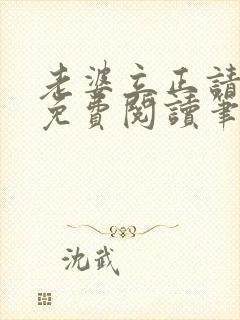 老婆立正請
免費閱讀筆
沈武